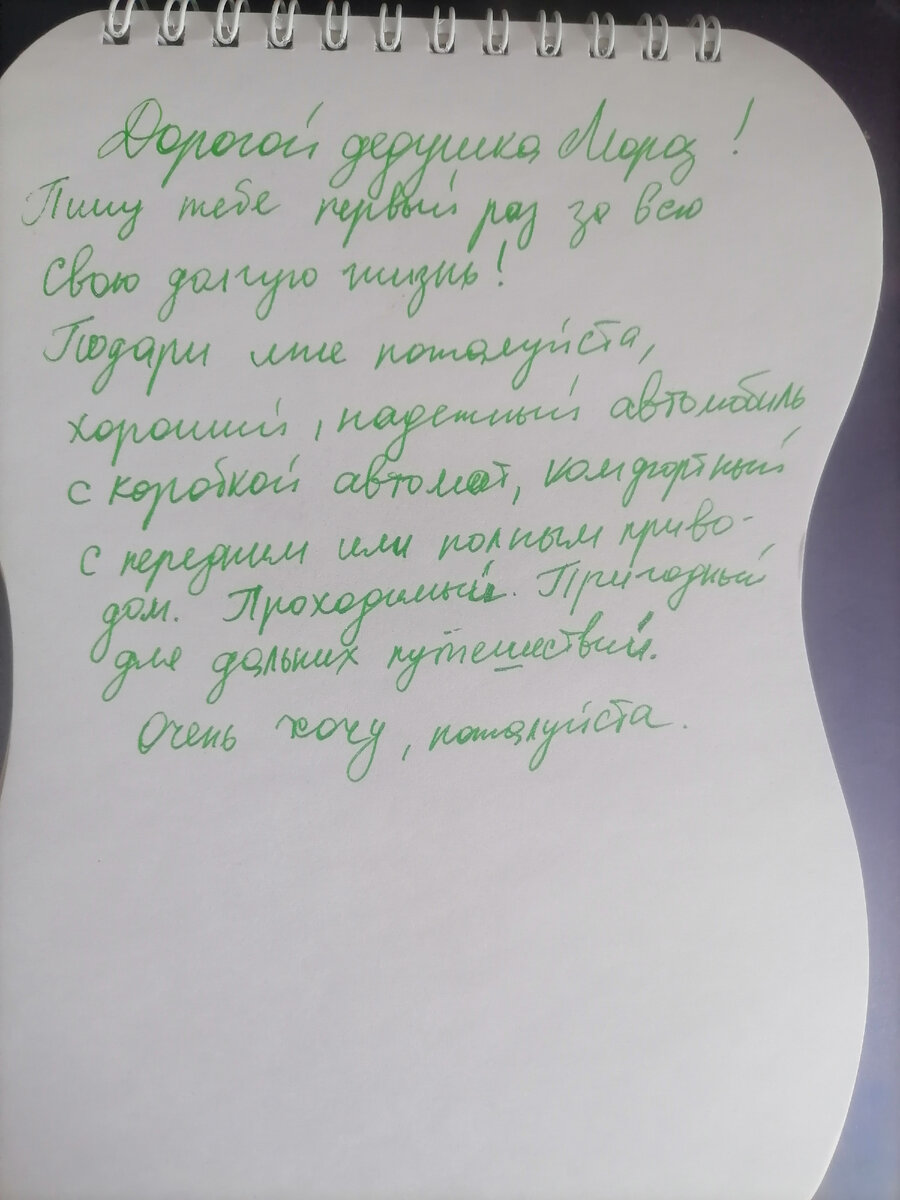 Дорогой дедушка Мороз!
Пишу тебе первый раз за всю
Свою долгую жизнь!
Подари мне пожалуйста,
хороший, надежный автомобиль
с коробкой автомат, комфортный
с передним или полным приво-
дом. Проходимый. Пригодный
для дальних путешествий.
Очень хочу, пожалуйста.